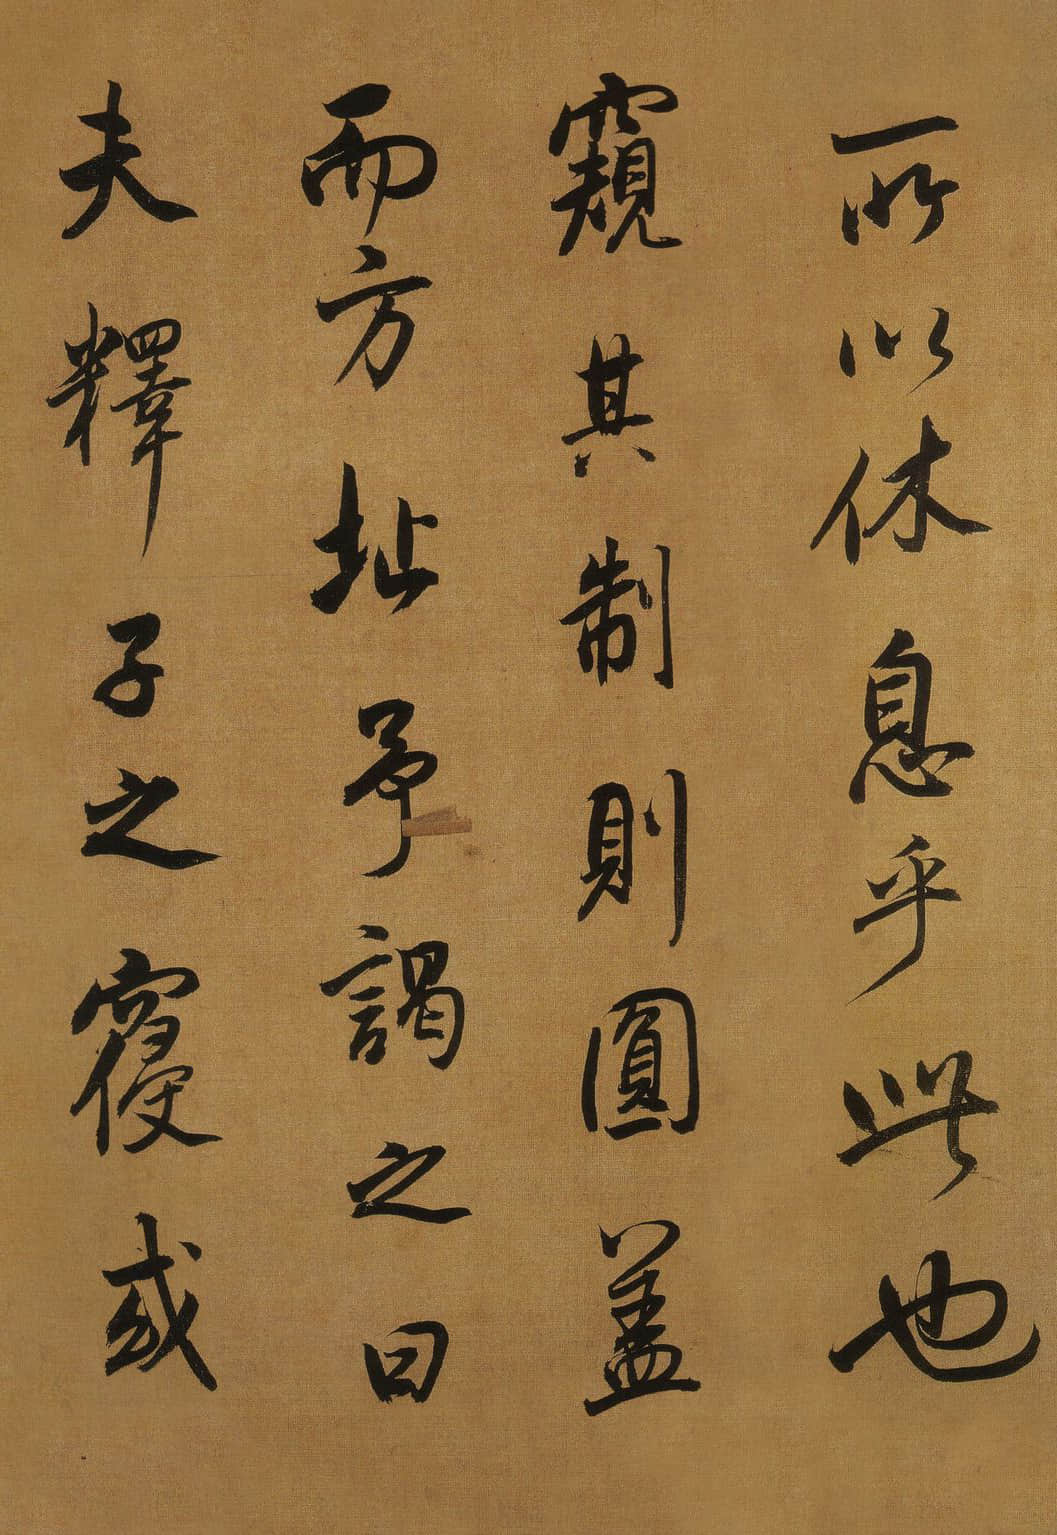 所以休息乎此也
窺其制則圓盖
而方址予謁之曰
夫釋子之寑或